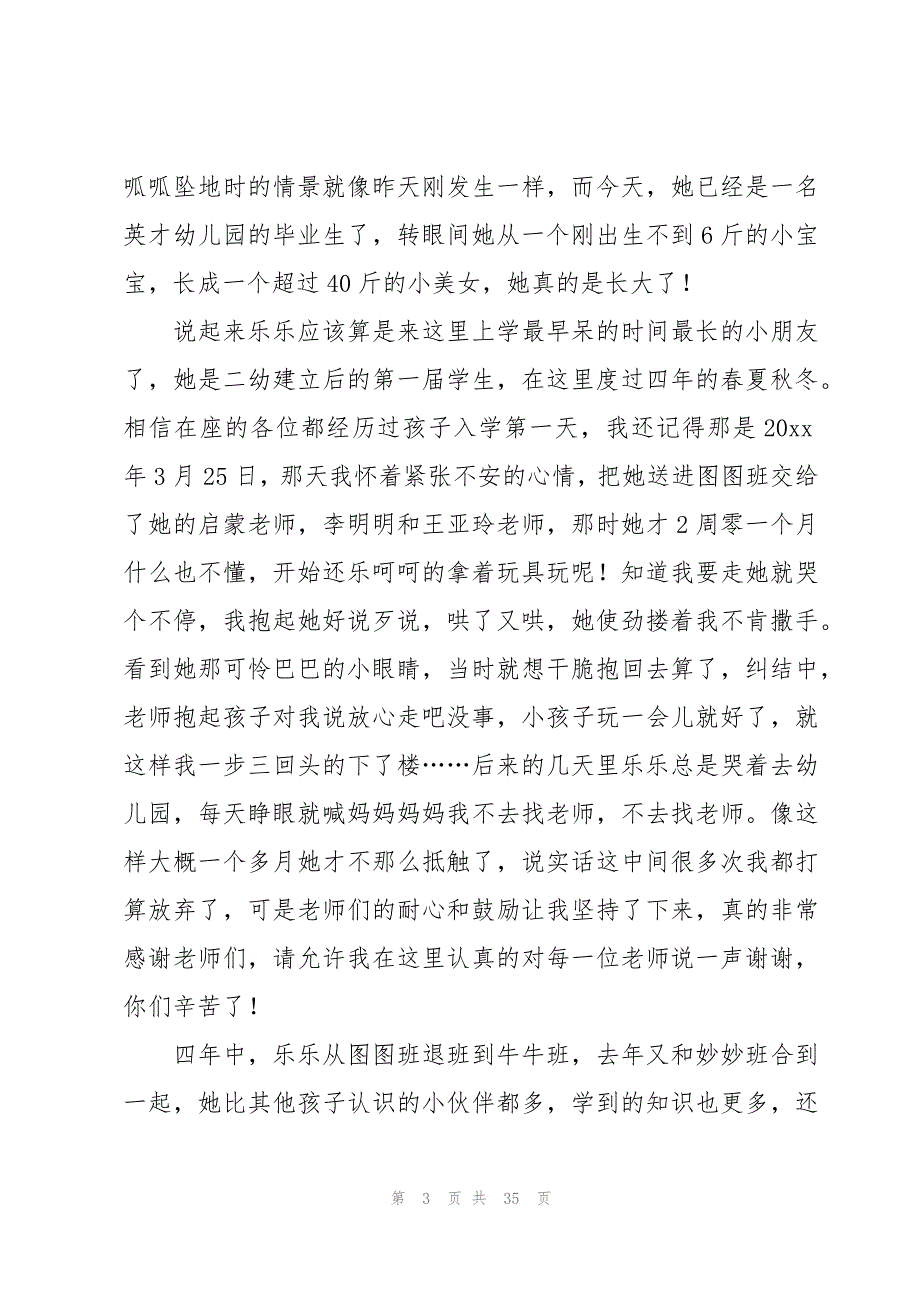 呱呱坠地时的情景就像昨天刚发生一样，而今天，她已经是一名
英才幼儿园的毕业生了，转眼间她从一个刚出生不到 6 斤的小宝
宝，长成一个超过 40 斤的小美女，她真的是长大了！
说起来乐乐应该算是来这里上学最早呆的时间最长的小朋友
了，她是二幼建立后的第一届学生，在这里度过四年的春夏秋冬。
相信在座的各位都经历过孩子入学第一天，我还记得那是 20xx
年 3 月 25 日，那天我怀着紧张不安的心情，把她送进图图班交给
了她的启蒙老师，李明明和王亚玲老师，那时她才 2 周零一个月
什么也不懂，开始还乐呵呵的拿着玩具玩呢！知道我要走她就哭
个不停，我抱起她好说歹说，哄了又哄，她使劲搂着我不肯撒手。
看到她那可怜巴巴的小眼睛，当时就想干脆抱回去算了，纠结中，
老师抱起孩子对我说放心走吧没事，小孩子玩一会儿就好了，就
这样我一步三回头的下了楼……后来的几天里乐乐总是哭着去幼
儿园，每天睁眼就喊妈妈妈妈我不去找老师，不去找老师。像这
样大概一个多月她才不那么抵触了，说实话这中间很多次我都打
算放弃了，可是老师们的耐心和鼓励让我坚持了下来，真的非常
感谢老师们，请允许我在这里认真的对每一位老师说一声谢谢，
你们辛苦了！
四年中，乐乐从图图班退班到牛牛班，去年又和妙妙班合到
一起，她比其他孩子认识的小伙伴都多，学到的知识也更多，还
第 3 页 共 35 页